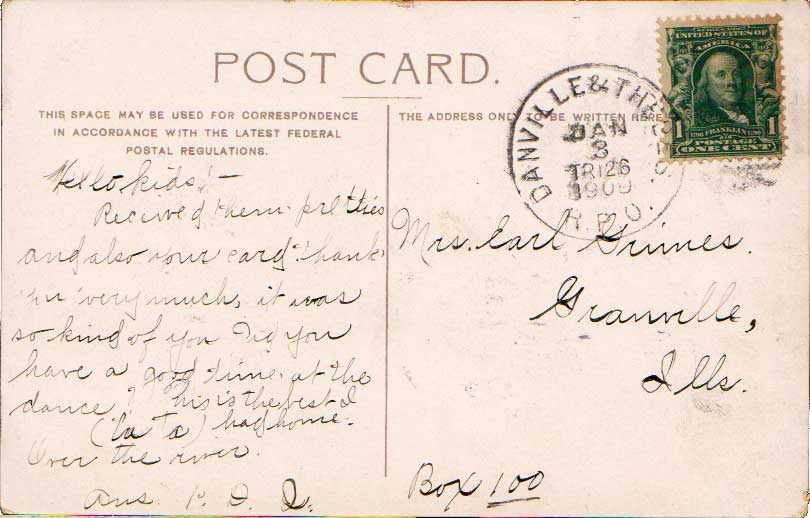 POST CARD.
THIS SPACE MAY BE USED FOR CORRESPONDENCE
IN ACCORDANCE WITH THE LATEST FEDERAL
POSTAL REGULATIONS.
Hello kids! —
Received them pretties
and also your card. Thank
you very much, it was
so kind of you Did you
have a good time at the
dance? This is the best I
(Ta Ta) had home.
Over the river.
Ans. P. D. Q.
THE ADDRESS ONLY TO BE WRITTEN HERE
DANVILLE & THE
JAN
3
TR126
1909
R.P.O.
SERIES 1902
UNITED STATES OF
AMERICA
1 1
1706 FRANKLIN 1790
POSTAGE
ONE CENT
Mrs. Earl Grimes.
Granville,
Ills.
Box 100